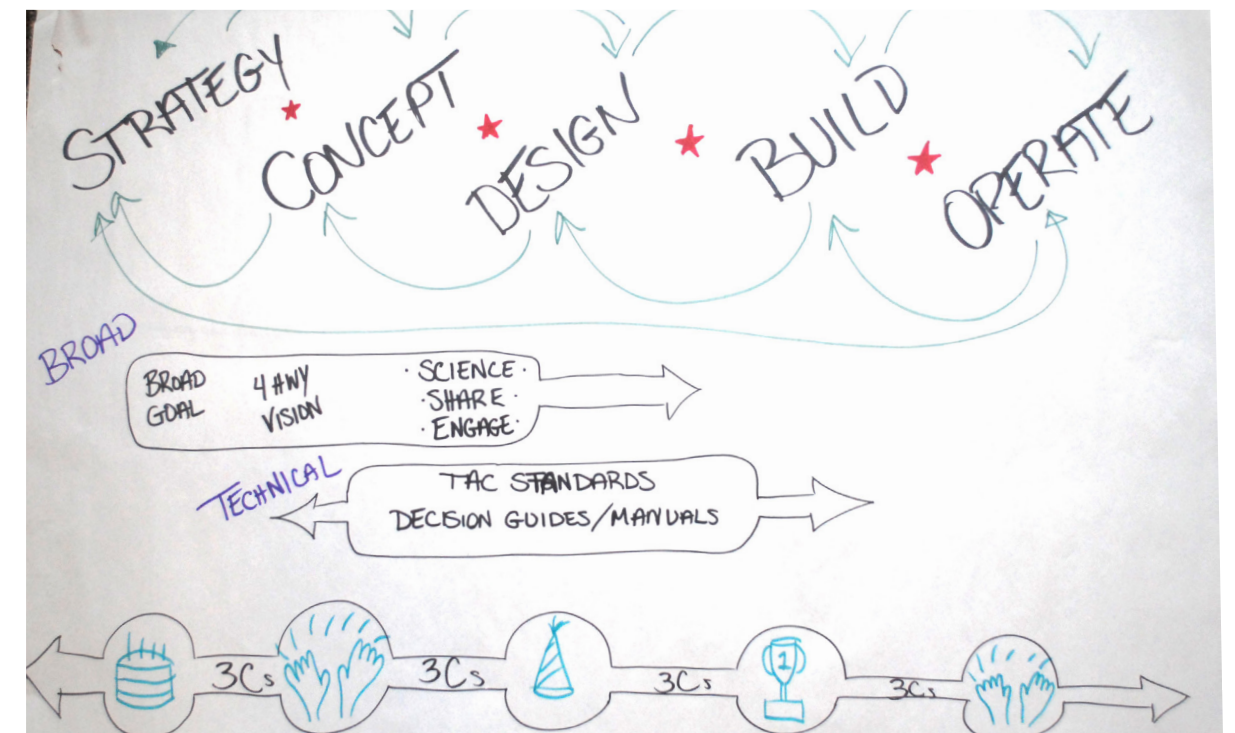 STRATEGY
CONCEPT
DESIGN
BUILD
OPERATE
BROAD
BROAD GOAL
4 HWY VISION
· SCIENCE ·
· SHARE ·
· ENGAGE ·
TECHNICAL
TAC STANDARDS
DECISION GUIDES/MANUALS
3Cs
3Cs
1
3Cs
3Cs